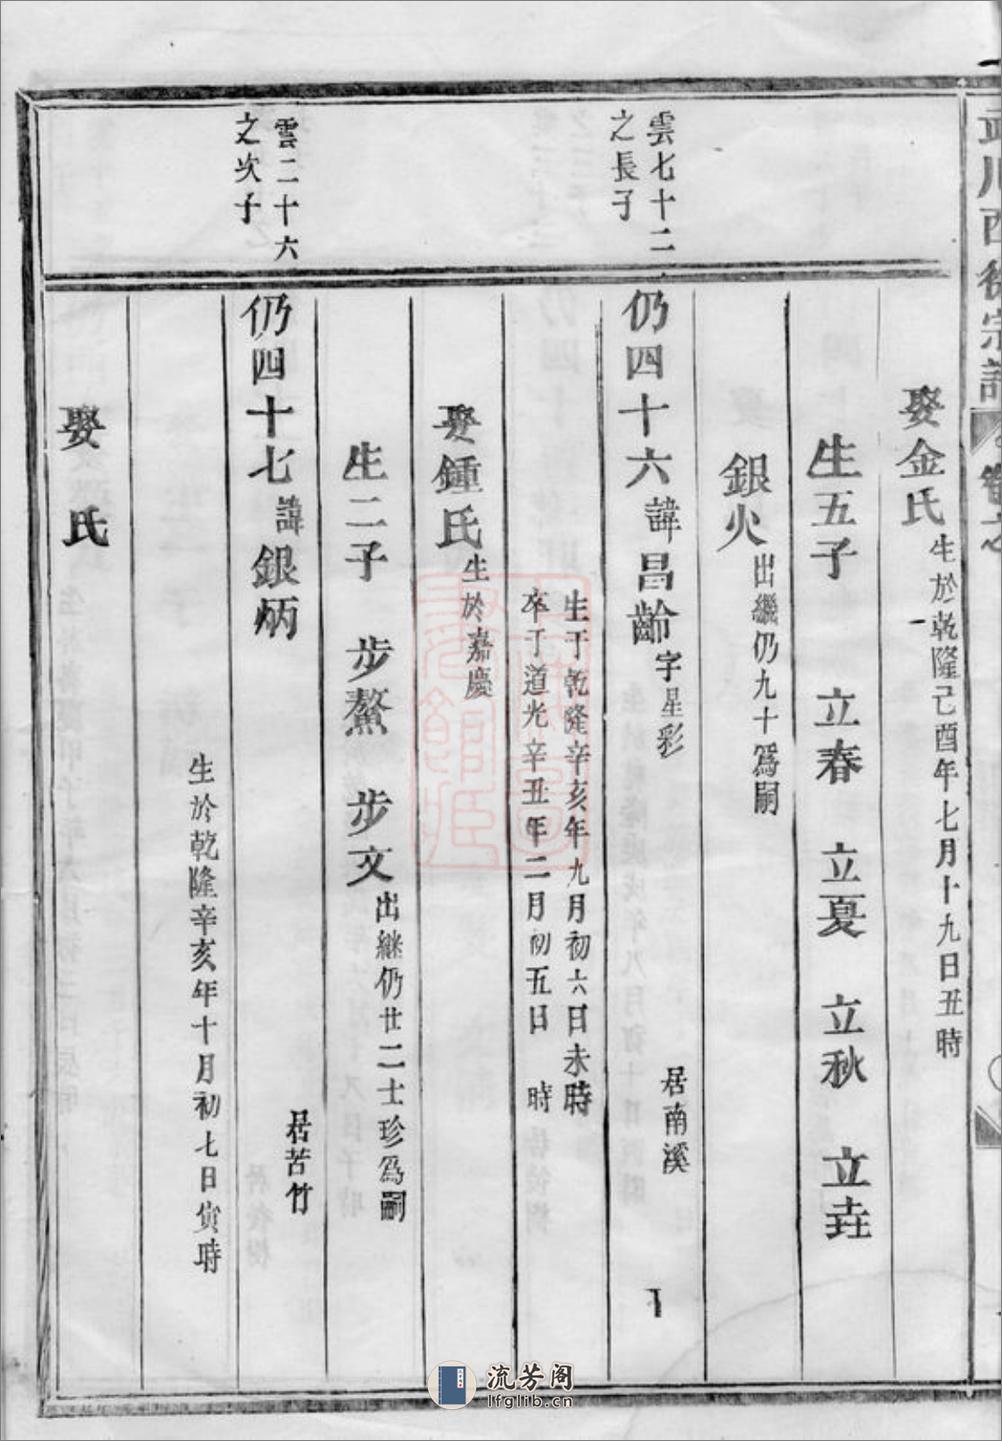 川西徐宗譜
娶金氏生於乾隆己酉年七月十九日丑時
生五子 立春 立夏 立秋 立垚
銀火出繼仍九十爲嗣
雲七十二
之長子
仍四十六諱昌齡字星彩 居南溪
生于乾隆辛亥年九月初六日未時
卒于道光辛丑年二月初五日 時
娶鍾氏生於嘉慶
生二子 步鰲 步文出継仍廿二士珍爲嗣
雲二十六
之次子
仍四十七諱銀炳 居苦竹
生於乾隆辛亥年十月初七日寅時
娶 氏
流芳阁
lfglib.cn